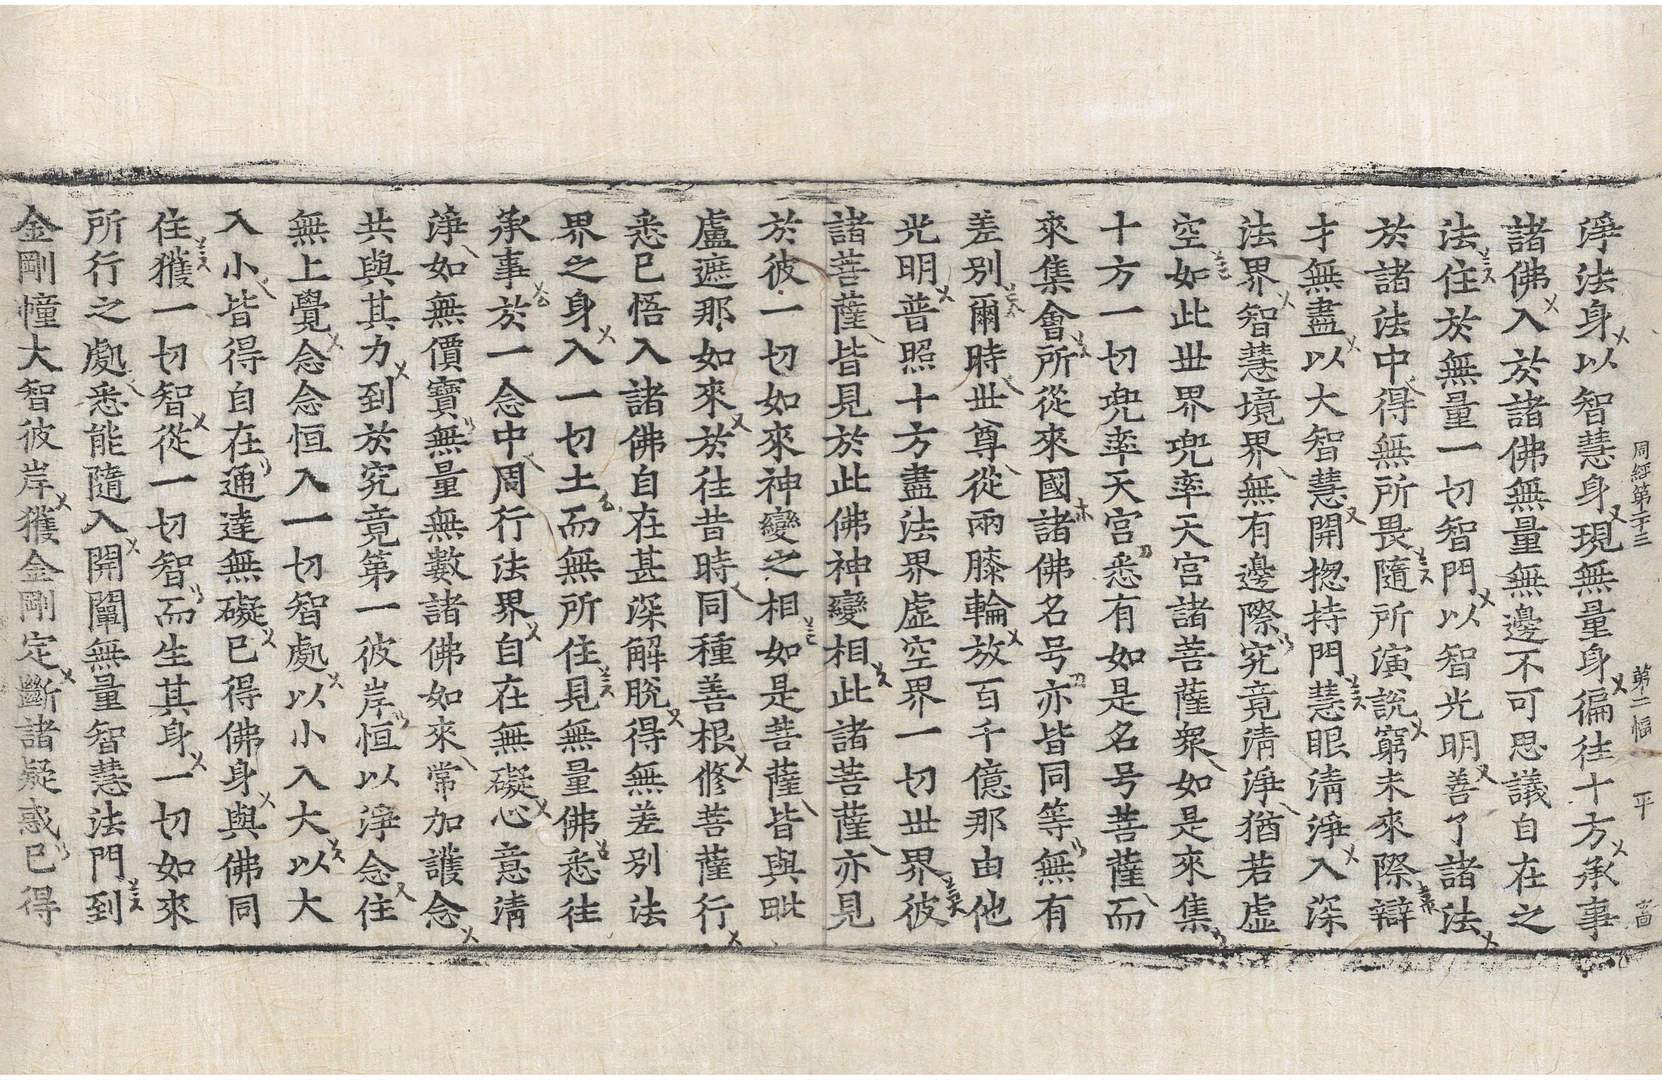 周經第二十三
淨法身以智慧身現無量身徧往十方承事
諸佛入於諸佛無量無邊不可思議自在之
法住於無量一切智門以智光明善了諸法
於諸法中得無所畏隨所演說窮未來際辯
才無盡以大智慧開揔持門慧眼清淨入深
法界智慧境界無有邊際究竟清淨猶若虛
空如此世界兜率天宮諸菩薩衆如是來集
十方一切兜率天宮悉有如是名号菩薩而
來集會所從來國諸佛名号亦皆同等無有
差別爾時世尊從兩膝輪放百千億那由他
光明普照十方盡法界虛空界一切世界彼
諸菩薩皆見於此佛神變相此諸菩薩亦見
於彼一切如來神變之相如是菩薩皆與毗
盧遮那如來於往昔時同種善根修菩薩行
悉已悟入諸佛自在甚深解脫得無差別法
界之身入一切土而無所住見無量佛悉往
承事於一念中周行法界自在無礙心意清
淨如無價寶無量無數諸佛如來常加護念
共與其力到於究竟第一彼岸恒以淨念住
無上覺念念恒入一切智處以小入大以大
入小皆得自在通達無礙已得佛身與佛同
住獲一切智從一切智而生其身一切如來
所行之處悉能隨入開闡無量智慧法門到
金剛幢大智彼岸獲金剛定斷諸疑惑已得